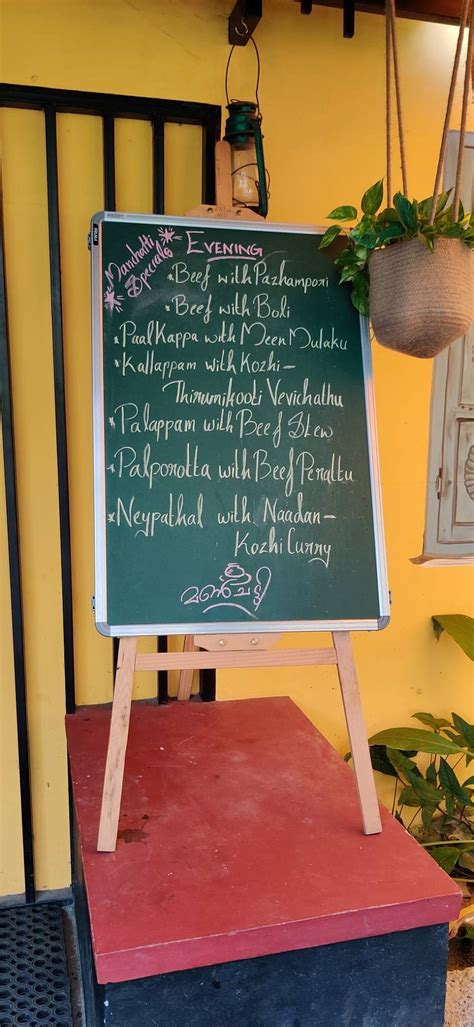 Manchatti
Specials
EVENING
* Beef with Pazhampori
* Beef with Boli
* Paal Kappa with Meen Mulaku
* Kallappam with Kozhi –
Thirumikooti Vevichathu
* Palappam with Beef Stew
* Palporotta with Beef Perattu
* Neypathal with Naadan –
Kozhi Curry
മൺചട്ടി